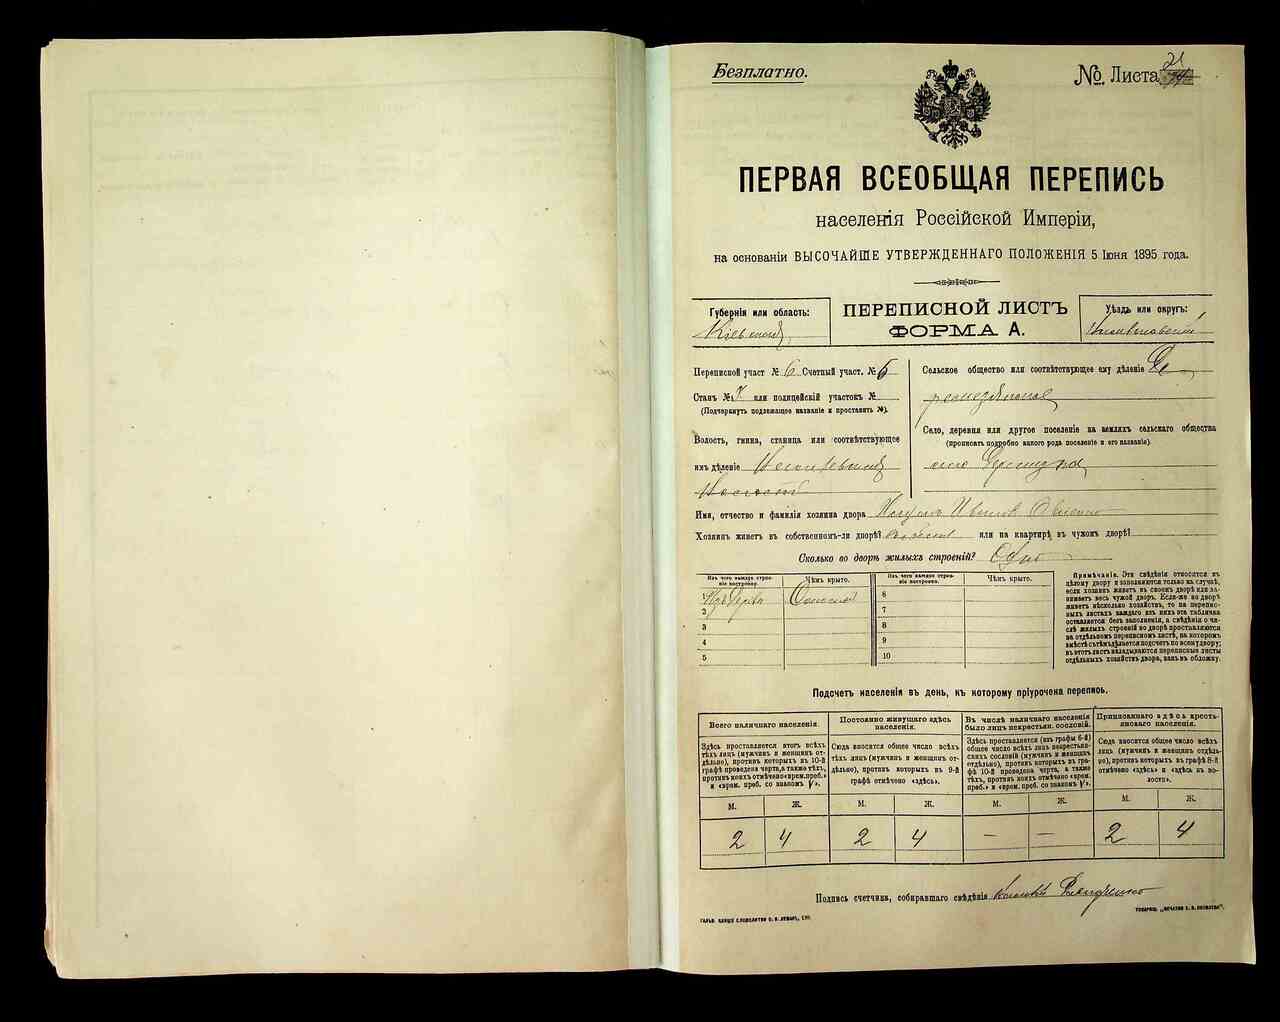 Безплатно.
№ Листа 21
ПЕРВАЯ ВСЕОБЩАЯ ПЕРЕПИСЬ
населенія Россійской Имперіи,
на основаніи ВЫСОЧАЙШЕ УТВЕРЖДЕННАГО ПОЛОЖЕНІЯ 5 Іюня 1895 года.
Губернія или область:
ПЕРЕПИСНОЙ ЛИСТЪ
ФОРМА А.
Уѣздъ или округъ:
Переписной участ № 6 Счетный участ. № 6
Станъ № или полицейскій участокъ №
(Подчеркнуть подлежащее названіе и проставить №).
Волость, гмина, станица или соотвѣтствующее
имъ дѣленіе
Сельское общество или соотвѣтствующее ему дѣленіе
Село, деревня или другое поселеніе на земляхъ сельскаго общества
(прописать подробно какого рода поселеніе и его названіе).
село
Имя, отчество и фамилія хозяина двора
Хозяинъ живетъ въ собственномъ-ли дворѣ? или на квартирѣ въ чужомъ дворѣ?
Сколько во дворѣ жилыхъ строеній? Одно
Изъ чего каждое строеніе построено.
Чѣмъ крыто.
Изъ чего каждое строеніе построено.
Чѣмъ крыто.
1 Изъ дерева Соломой
2
3
4
5
6
7
8
9
10
Примѣчаніе. Эти свѣдѣнія относятся къ
цѣлому двору и заполняются только на случай,
если хозяинъ живетъ въ своемъ дворѣ или занимаетъ
весь чужой дворъ. Если-же во дворѣ
живетъ нѣсколько хозяйствъ, то на переписныхъ
листахъ каждаго изъ нихъ эта табличка
оставляется безъ заполненія, а свѣдѣнія о числѣ
жилыхъ строеній во дворѣ проставляются
на отдѣльномъ переписномъ листѣ, на которомъ
вмѣстѣ съ тѣмъ дѣлается подсчетъ по всему двору;
въ этотъ листъ вкладываются переписные листы
отдѣльныхъ хозяйствъ двора, какъ въ обложку.
Подсчетъ населенія въ день, къ которому пріурочена перепись.
Всего наличнаго населенія.
Здѣсь проставляется итогъ всѣхъ
тѣхъ лицъ (мужчинъ и женщинъ отдѣльно),
противъ которыхъ въ 10-й
графѣ проведена черта, а также тѣхъ,
противъ коихъ отмѣчено «врем. преб.»
и «врем. преб. со знакомъ V».
Постоянно живущаго здѣсь
населенія.
Сюда вносится общее число всѣхъ
тѣхъ лицъ (мужчинъ и женщинъ отдѣльно),
противъ которыхъ въ 9-й
графѣ отмѣчено «здѣсь».
Въ числѣ наличнаго населенія
было лицъ некрестьян. сословій.
Здѣсь проставляется (изъ графы 6-й)
общее число всѣхъ лицъ некрестьянскихъ
сословій (мужчинъ и женщинъ
отдѣльно), противъ которыхъ въ графѣ
10-й проведена черта, а также
тѣхъ, противъ коихъ отмѣчено «врем.
преб.» и «врем. преб. со знакомъ V».
Приписаннаго здѣсь крестьянскаго
населенія.
Сюда вносится общее число всѣхъ
лицъ (мужчинъ и женщинъ отдѣльно),
противъ которыхъ въ графѣ 8-й
отмѣчено «здѣсь» и «здѣсь въ волости».
М. Ж. М. Ж. М. Ж. М. Ж.
2 4 2 4 — — 2 4
Подпись счетчика, собиравшаго свѣдѣнія